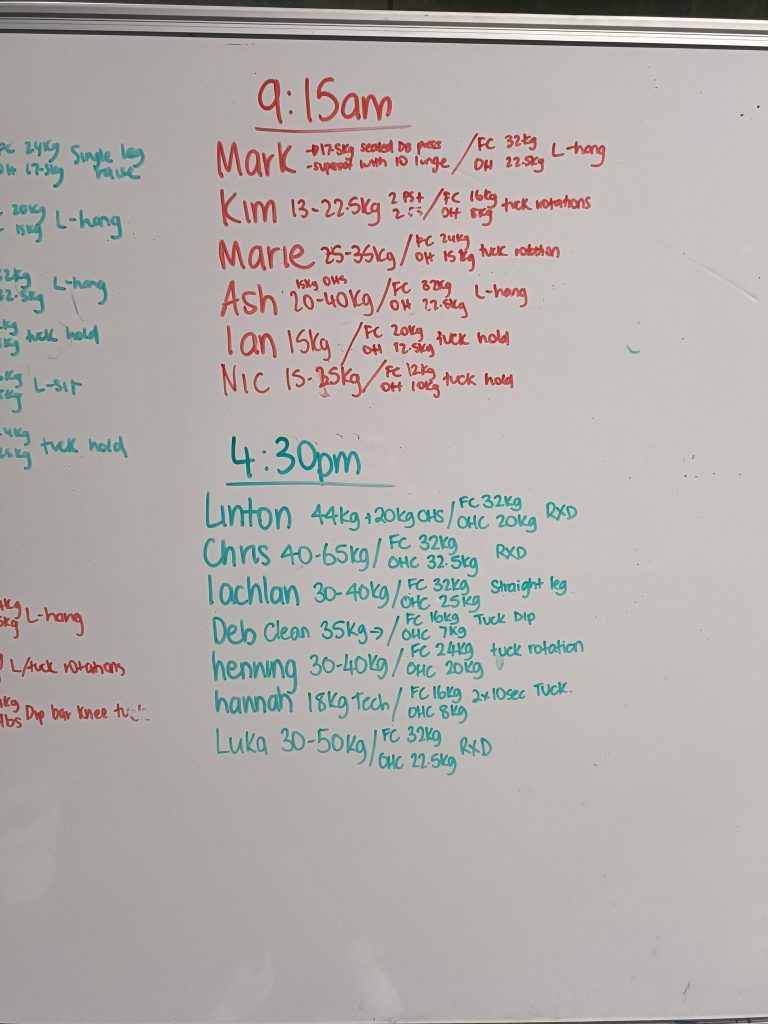 FC 24kg Single leg
OH 17.5kg raise
20kg L-hang
15kg
32kg L-hang
32.5kg
kg tuck hold
kg
kg L-sit
5kg
4kg tuck hold
kg
kg L-hang
5kg
L/tuck rotations
kg Dip bar knee tuck
lbs
9:15am
Mark →17.5kg seated DB press / FC 32kg L-hang
-superset with 10 lunge OH 22.5kg
Kim 13-22.5kg 2 PS+ / FC 16kg tuck rotations
OH 8kg
Marie 25-35kg / FC 24kg tuck rotation
OH 15kg
15kg OHS
Ash 20-40kg / FC 32kg L-hang
OH 22.5kg
Ian 15kg / FC 20kg tuck hold
OH 12.5kg
Nic 15-35kg / FC 12kg tuck hold
OH 10kg
4:30pm
Linton 44kg +20kg OHS / FC 32kg RXD
OHC 20kg
Chris 40-65kg / FC 32kg RXD
OHC 32.5kg
lachlan 30-40kg / FC 32kg Straight leg
OHC 25kg
Deb Clean 35kg → / FC 16kg Tuck Dip
OHC 7kg
henning 30-40kg / FC 24kg tuck rotation
OHC 20kg
hannah 18kg Tech / FC 16kg 2x10sec Tuck.
OHC 8kg
Luka 30-50kg / FC 32kg RXD
OHC 22.5kg